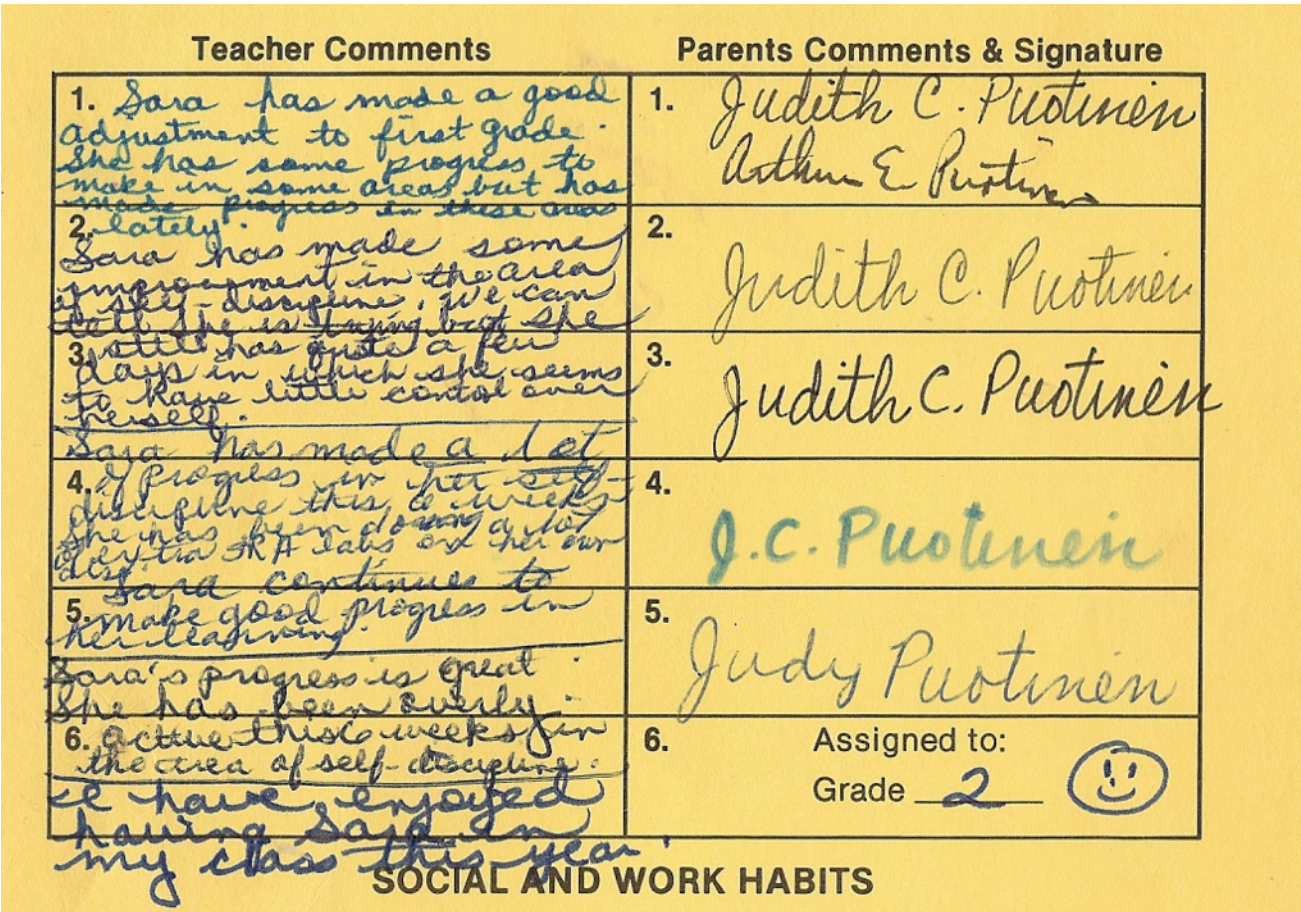 Teacher Comments
1. Sara has made a good
adjustment to first grade.
She has some progress to
make in some areas but has
made progress in these areas
lately.
2.
Sara has made some
improvement in the area
of self-discipline. We can
tell she is trying but she
still has quite a few
3.
days in which she seems
to have little control over
herself.
Sara has made a lot
4. of progress in her self-
discipline this 6 weeks.
She has been doing a lot
SRA labs on her own
Sara continues to
5. make good progress in
her learning.
Sara's progress is great.
She has been overly
6. active this 6 weeks in
the area of self-discipline.
I have enjoyed
having Sara in
my class this year.
Parents Comments & Signature
1. Judith C. Puotinen
Arthur E. Puotinen
2. Judith C. Puotinen
3. Judith C. Puotinen
4. J.C. Puotinen
5. Judy Puotinen
6. Assigned to:
Grade 2
SOCIAL AND WORK HABITS